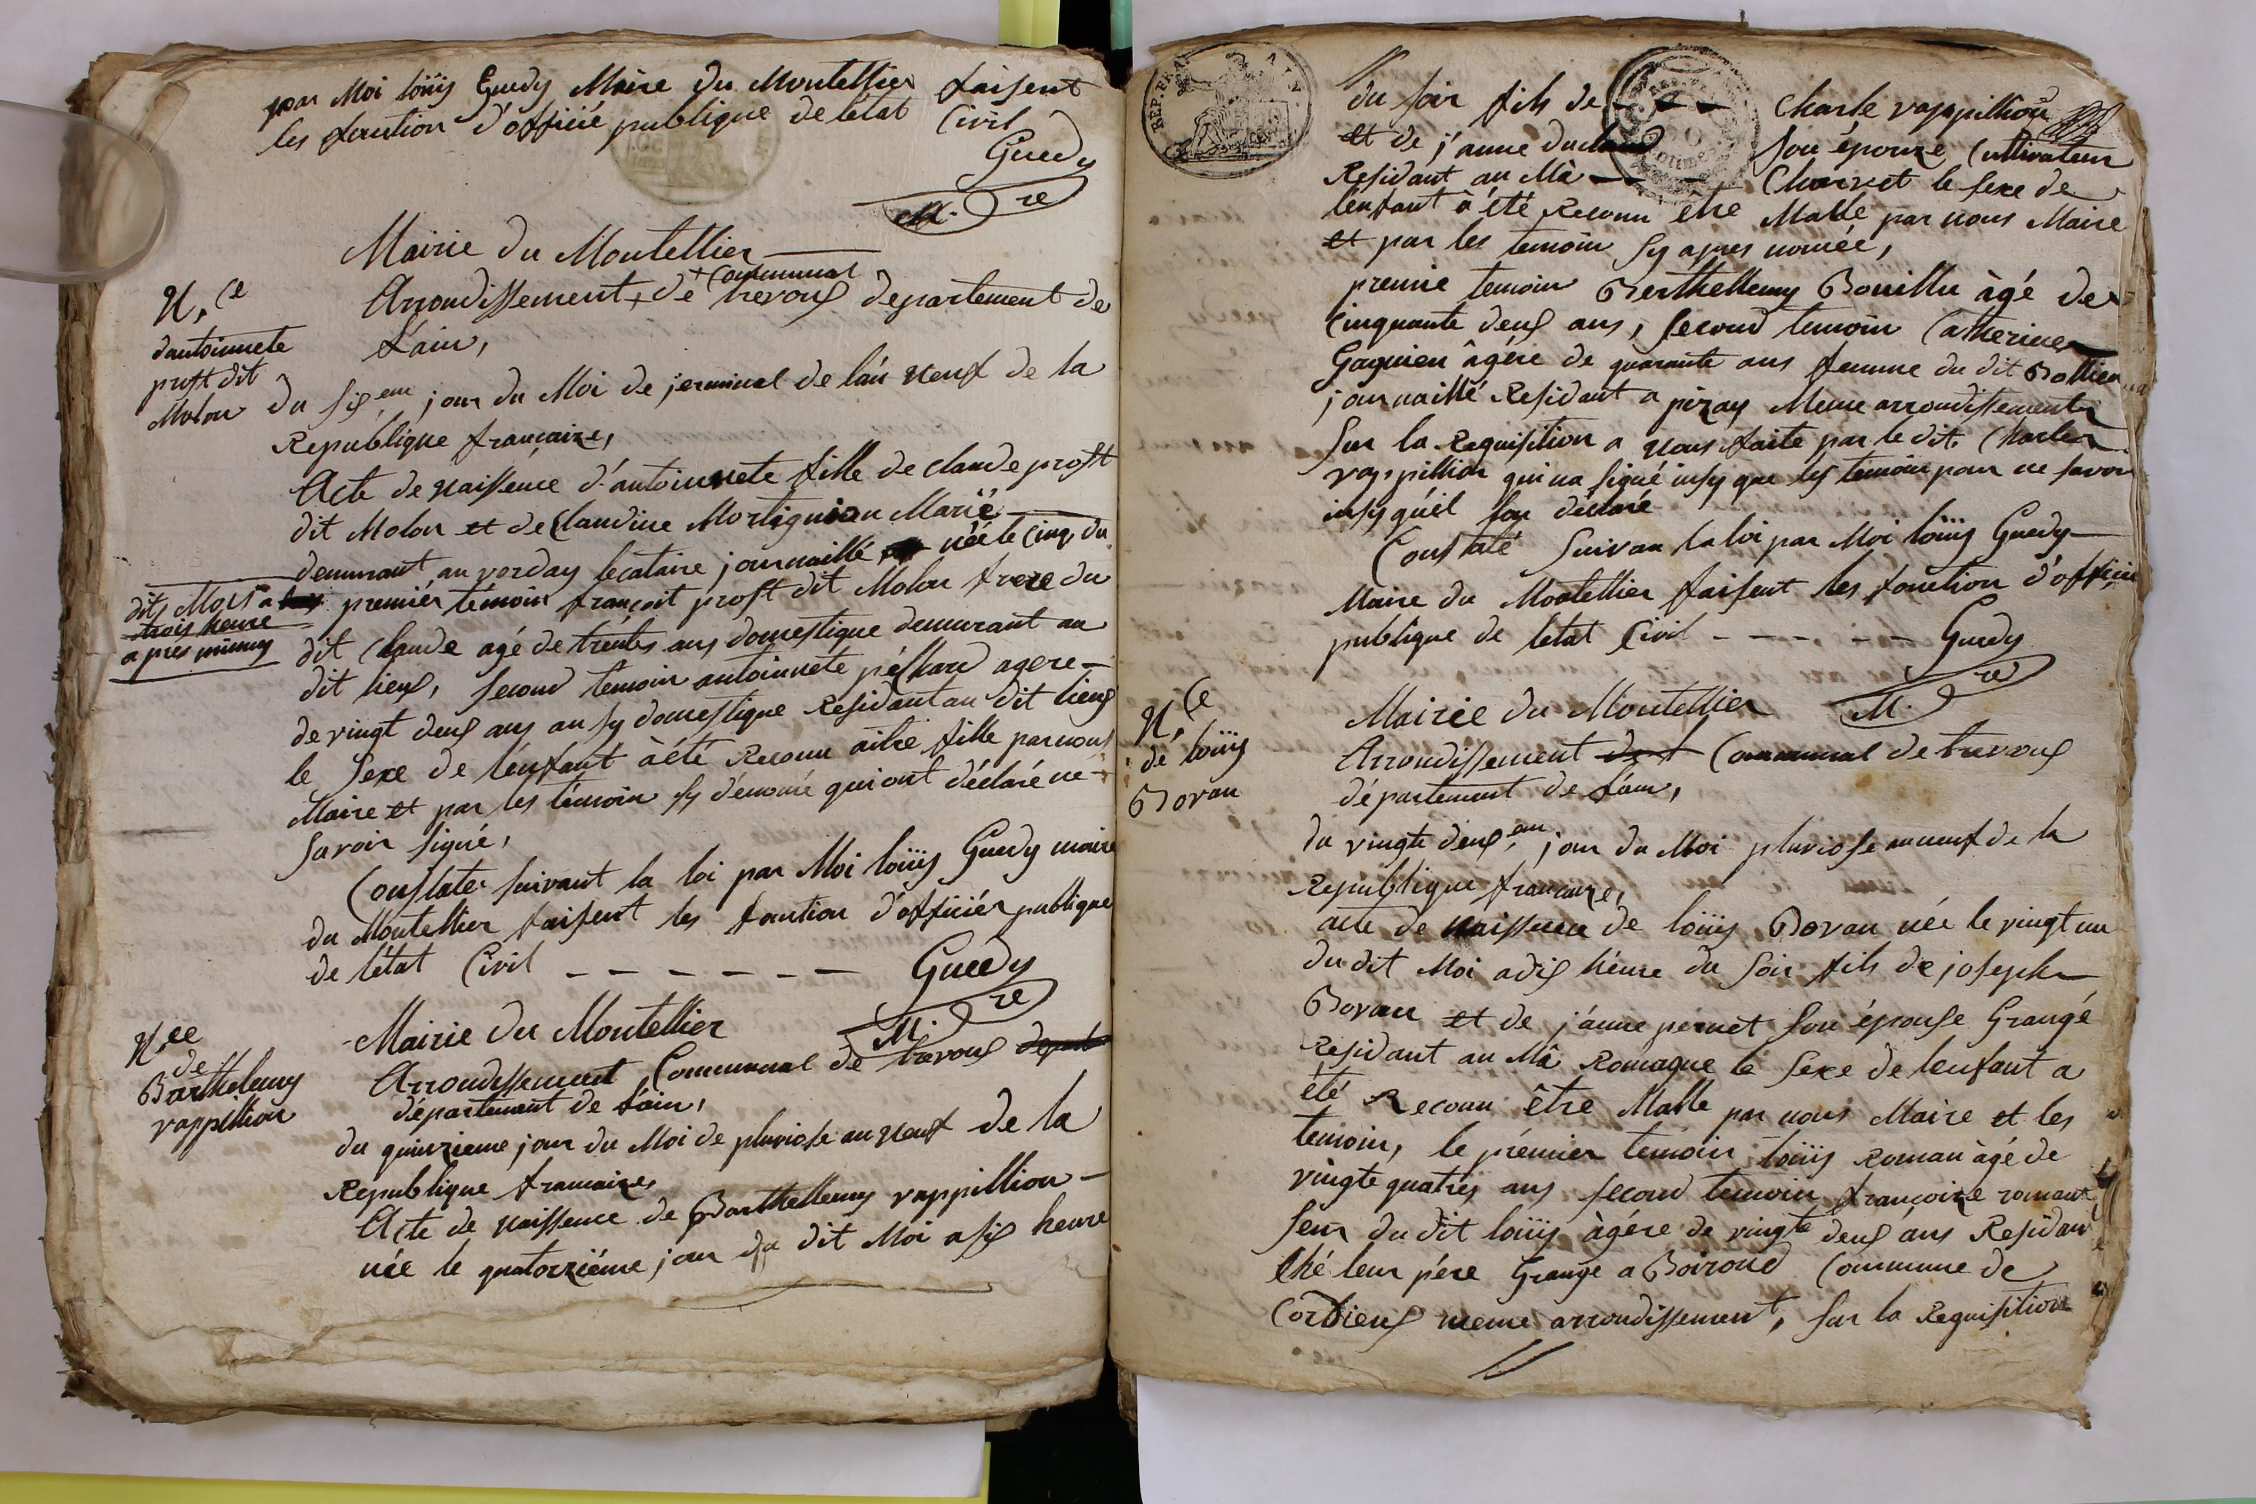 par Moi loüis Guedy Maire du Montellier faisent
les fontion d'officié publique de letat Civil
Guedy
M. re
Mairie du Montellier
N.ce
dantoinnete
prost dit
Molon
Arrondissement + de trevoux departement de
+ Communal
Lain,
du six em jour du Moi de jerminal de lan neuf de la
Republique française,
Acte de naissence d'antoinnete fille de claude prost
dit Molon et de Claudine Mortignion Marié
demurant au verday locataire journaillé née le Cinq du
dits Mois a
trois heure
apres minuy
premiér témoin françoit prost dit Molon frere du
dit Claude agé de trentes ans domestique demurant au
dit lieux, second temoin antoinnete péchard agere
de vingt deux ans au sy domestique Residant au dit lieux
le sexe de lenfant à été Reconu aitre fille par nous
Maire et par les témoin sy dénomé qui ont déclaré ne
savoir signé,
Constater suivant la loi par Moi loüis Guedy maire
du Montellier faisent les fontion d'officiér publique
de létat Civil - - - - - - - Guedy
M. re
Mairie du Montellier
N.ce
de
Barthelemy
rappillion
Arrondissement Communal de trevoux depart
département de Lain,
du quinzieme jour du Moi de pluviose an neuf de la
Republique francaize
Acte de naissence de Barthellemy rappillion
née le quatorziéme jour du dit Moi a six heure
REP. FRA.
AYN.
du soir fils de Charle rappillion
et de j'anne son épouze Cultivateur
Residant au Mâ Charvet le sexe de
lenfant à été Reconu etre Malle par nous Maire
et par les temoin sy apres nomée,
premié temoin Berthellemy Bouillu àgé de
Cinquante deux ans, second temoin Catherine
Gagnieu âgére de quarante ans femme du dit
journaillé Residant a pizay Meme arrondissement
sur la Requisition a nous faite par le dit Charle
rappillion qui na signé insy que les témoin pour ne savoir
insy quéil lon déclaré
Constaté suivan la loi par Moi loüis Guedy
Maire du Montellier faisent les fonction d'officié
publique de letat Civil - - - - - - Guedy
M. re
Mairie du Montellier
N.ce
de loüis
Bovan
Arrondissement de t Communal de trevoux
département de Lain,
du vingte deux em jour du Moi pluviose an neuf de la
Republique francaize,
acte de naissence de loüis Bovan née le vingt un
du dit Moi a dix héure du soir fils de joseph
Bovan et de j'anne pernet son épouse Grangé
Residant au Mâ Romagne le sexe de lenfant a
été Reconu être Malle par nous Maire et les
temoin, le prémier temoin loüis Roman àgé de
vingte quatres ans second temoin françoize romant
seur du dit loüis àgére de vingte deux ans Residant
Ché leur pére Grangé a Boirond Commune de
Cordieux meme arrondissement, sur la Requisition